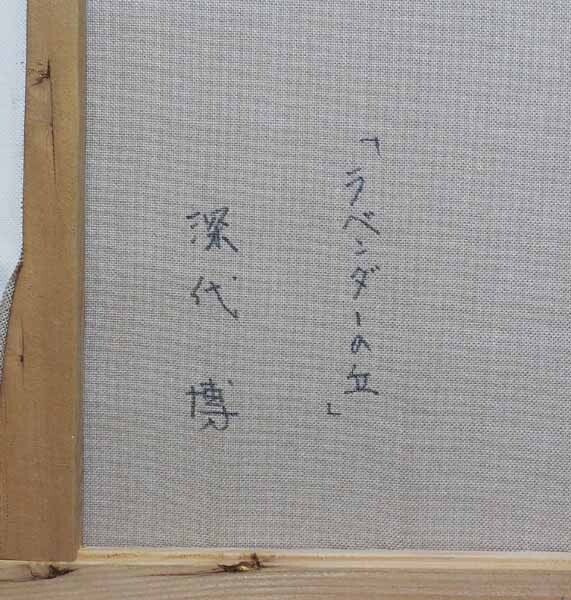 「ラベンダーの丘」
深代 博